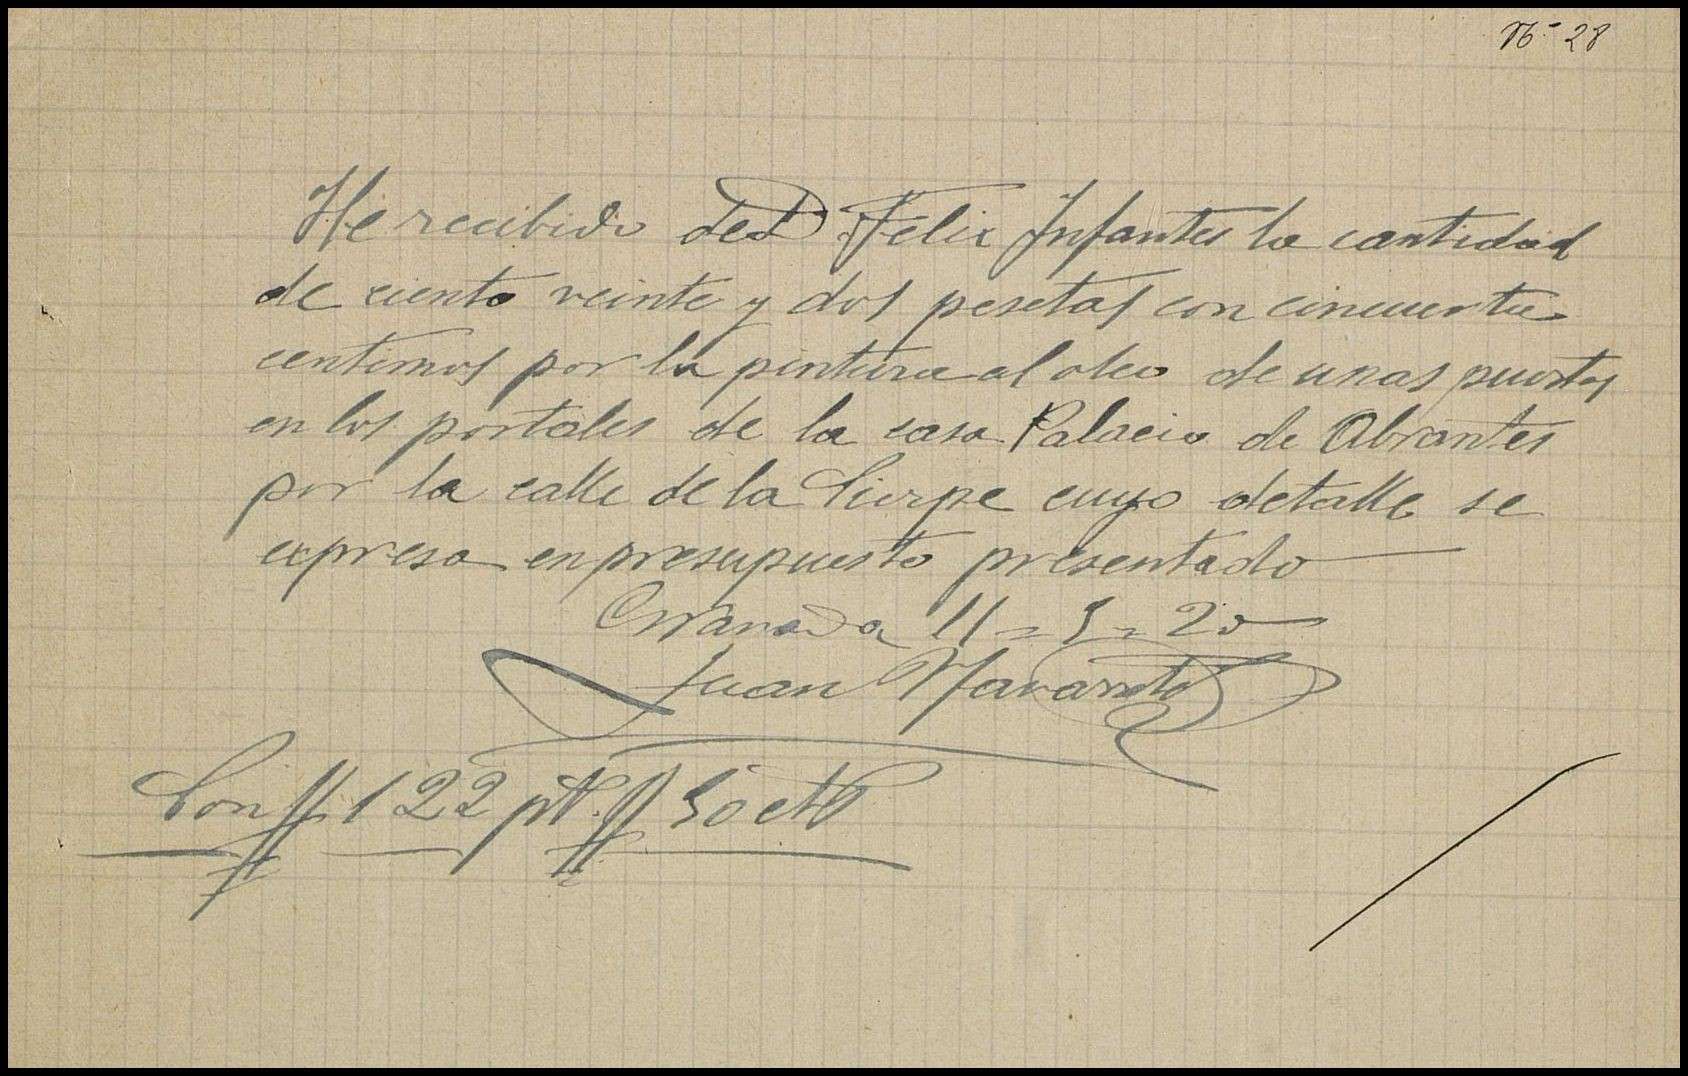 Nº 28
He recibido de D Felix Infantes la cantidad
de ciento veinte y dos pesetas con cincuenta
centimos por la pintura al oleo de unas puertas
en los portales de la casa Palacio de Abrantes
por la calle de la Sierpe cuyo detalle se
expresa en presupuesto presentado
Granada 11-5-20
Juan Navarrete
Son 122 pts. 50 cts